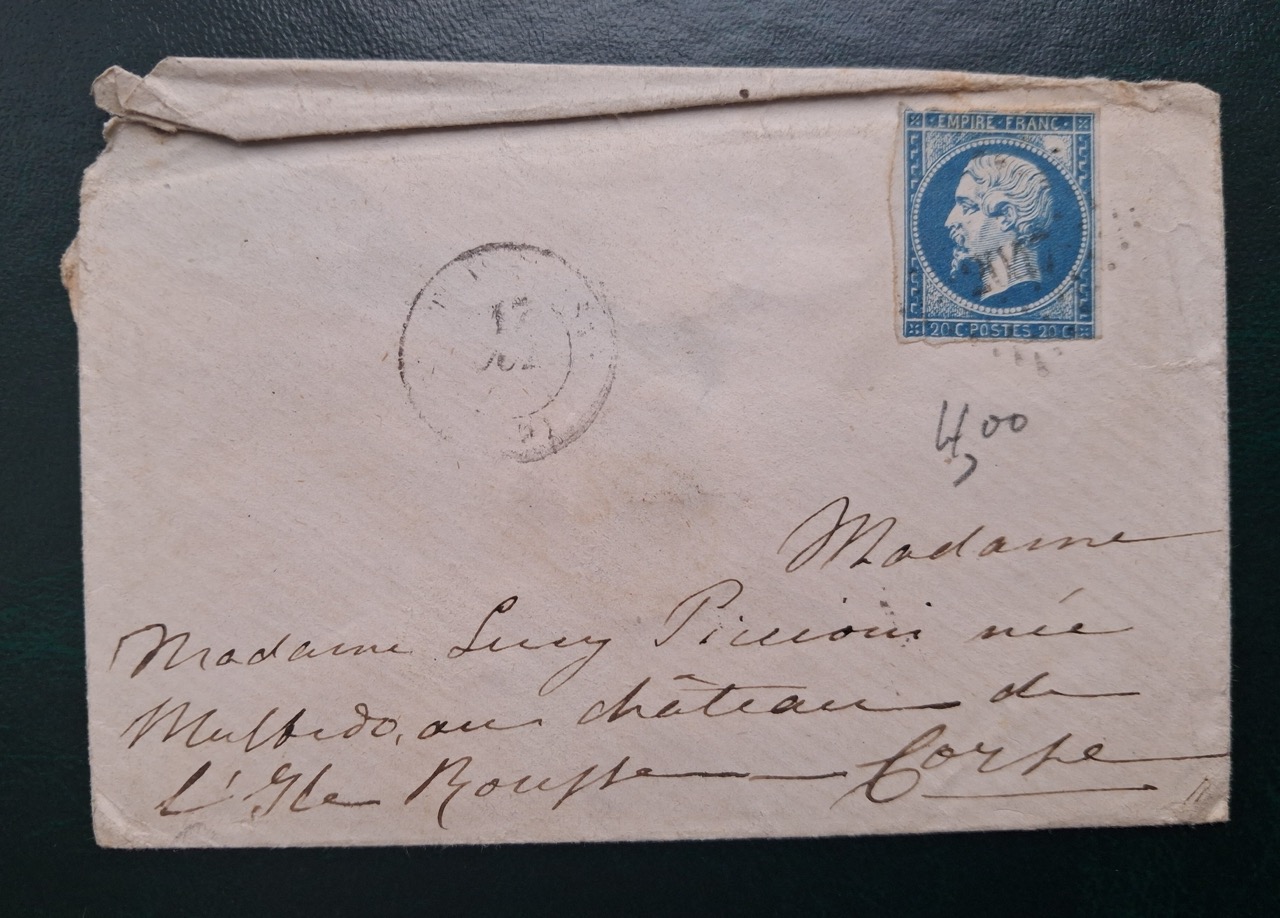 EMPIRE FRANC
20 C POSTES 20 C
17
4,00
Madame
Madame Lucy Piccioni née
au château de
L'Ile Rousse Corse